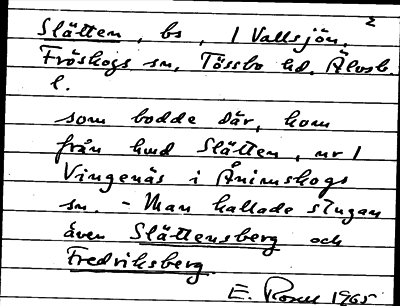 2
Slätten, bs, 1 Vallsjön,
Fröskogs sn, Tössbo hd. Älvsb.
l.
som bodde där, kom
från hmd Slätten, nr 1
Vingenäs i Ånimskogs
sn. - Man kallade stugan
även Slättensberg och
Fredriksberg
E. Rosell 1965